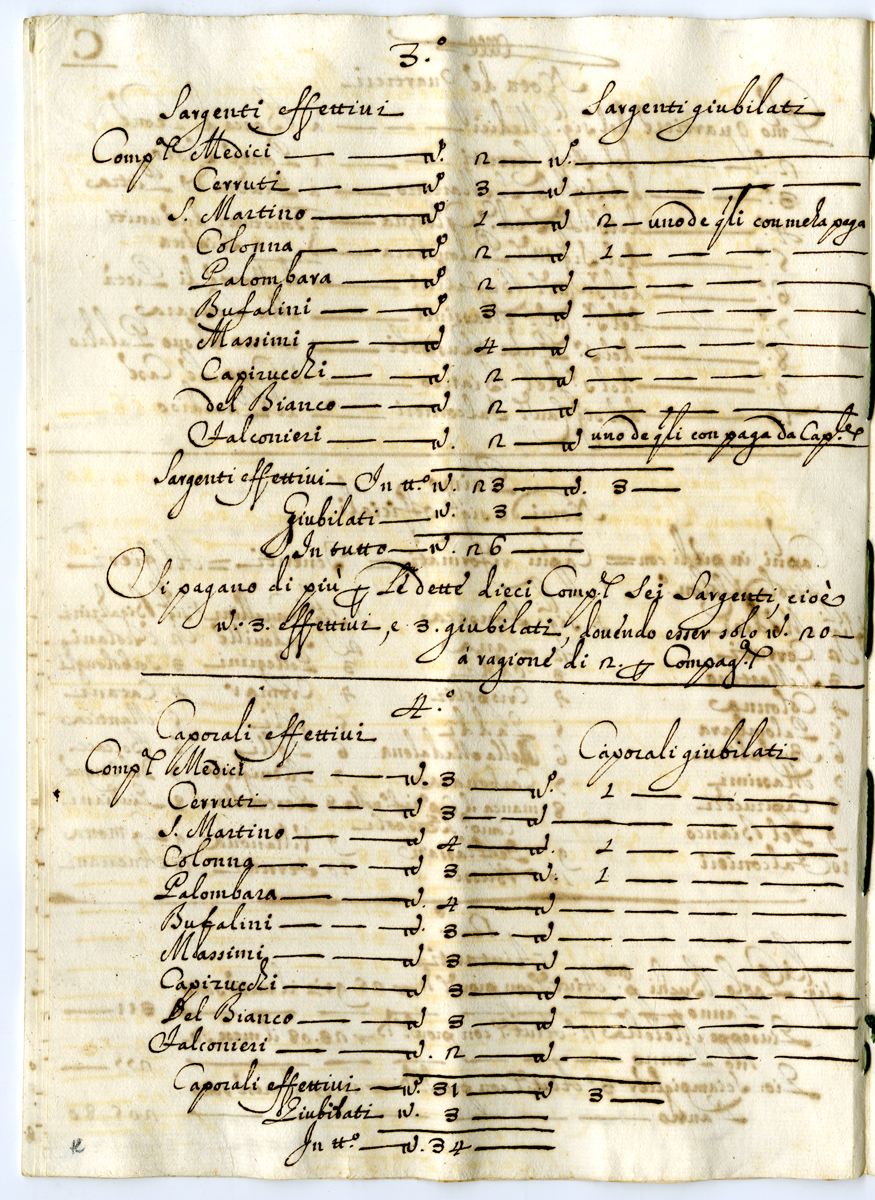 3.º
Sargenti effettivi Sargenti giubilati
Comp.ª Medici — — nº. 2 — nº. —
Cerruti — — nº 3 — nº — — —
S. Martino — nº 1 — nº 2 — uno de q̃li con meza paga
Colonna — — nº 2 — nº 1 — — —
Palombara — nº 2 — nº — — —
Bufalini — — nº 3 — nº — — —
Massimi — — nº 4 — nº — — —
Capizucchi — — nº. 2 — nº — — —
del Bianco — — nº. 2 — nº — — —
Falconieri — — nº. 2 — nº uno de q̃li con paga da Cap.le
Sargenti effettivi — In tt.º nº. 23 — nº. 3 —
Giubilati — nº. 3 —
In tutto — nº. 26 —
Si pagano di più p Le dette dieci Comp.e Sei Sargenti, cioè
nº. 3. effettivi, e 3. giubilati, dovendo esser solo nº. 20 —
à ragione di 2. p Compag.ª
4.º
Caporali effettivi Caporali giubilati
Comp.ª Medici — — nº. 3 — nº. 1 — — —
Cerruti — — — nº. 3 — nº — — —
S. Martino — — nº 4 — nº. 1 — — —
Colonna — — — nº 3 — nº. 1 — — —
Palombara — — nº. 4 — nº — — —
Bufalini — — — nº. 3 — — nº — — —
Massimi — — — nº 3 — nº — — —
Capizucchi — — nº 3 — nº — — —
Del Bianco — — nº 3 — nº — — —
Falconieri — — nº. 2 — nº — — —
Caporali effettivi — nº. 31 — nº 3 —
Giubilati nº. 3 —
In tt.º — nº. 34 —